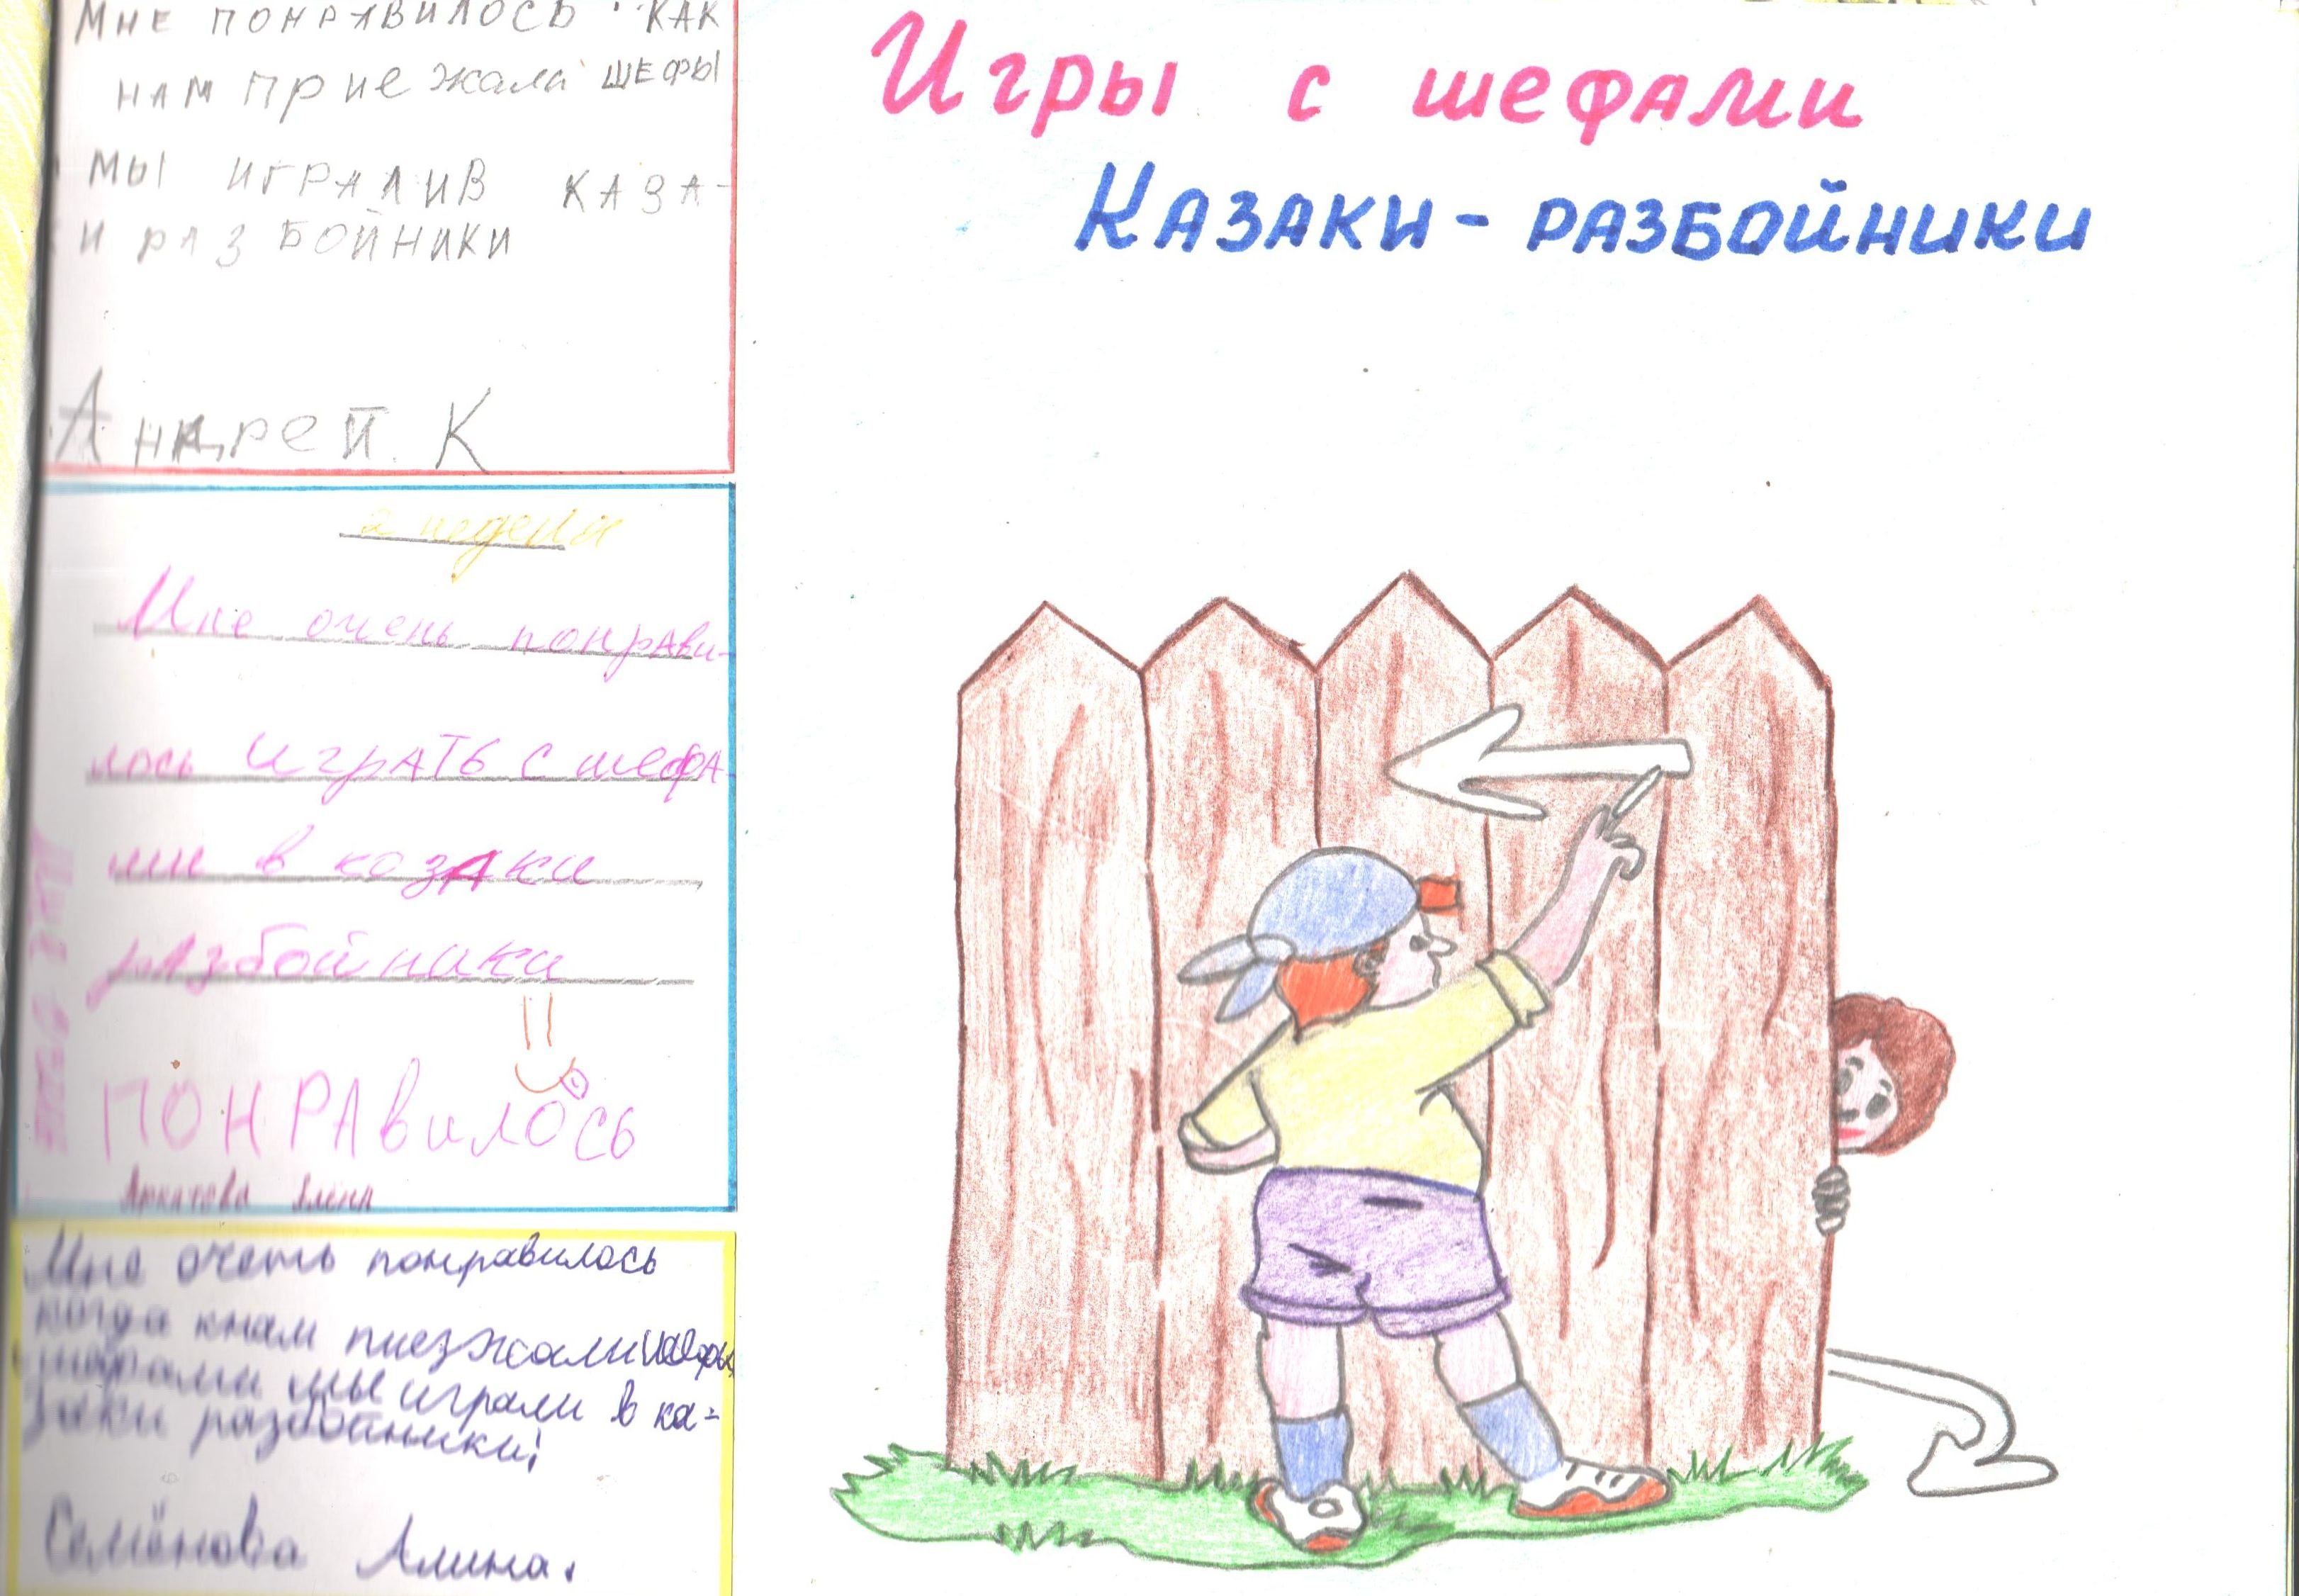 Мне понравилось как
нам приежали шефы
мы игралив каза-
и разбойники
Андрей. К
2 неделя
Мне очень понрави-
лось играть с шефа-
ми в козаки
разбойники
понравилось
Аркатова Алена
Мне очеть понравилось
когда кнам пиезжали шефы
шефами мы играли в ка-
заки разбойники!
Семёнова Алина.
Игры с шефами
Казаки-разбойники